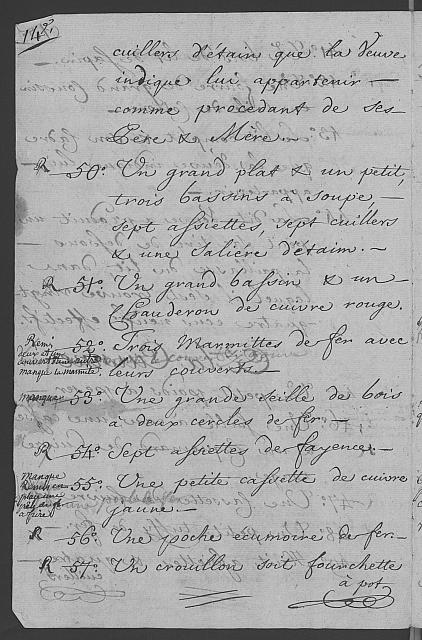 142.
cuillers d'étain que la Veuve
indique lui appartenir —
comme procédant de ses
Pere & Mère. —
R — 50.° Un grand plat & un petit,
trois bassins à soupe, —
sept assiettes, sept cuillers
& une saliére d'étaim. —
R — 51.° Un grand bassin & un —
Chauderon de cuivre rouge.
Remi 52.° Trois Marmittes de fer avec
deux et un
couvert d'une autre
manque la marmite. leurs couverts —
manque 53.° Une grande seille de bois
à deux cercles de fer. —
R — 54.° Sept assiettes de fayence. —
Manque
Remis en
place une
à frire 55.° Une petite cassette de cuivre
jaune. —
R — 56.° Une poche ecumoire de fer. —
R — 57.° Un crouillon soit fourchette
à pot